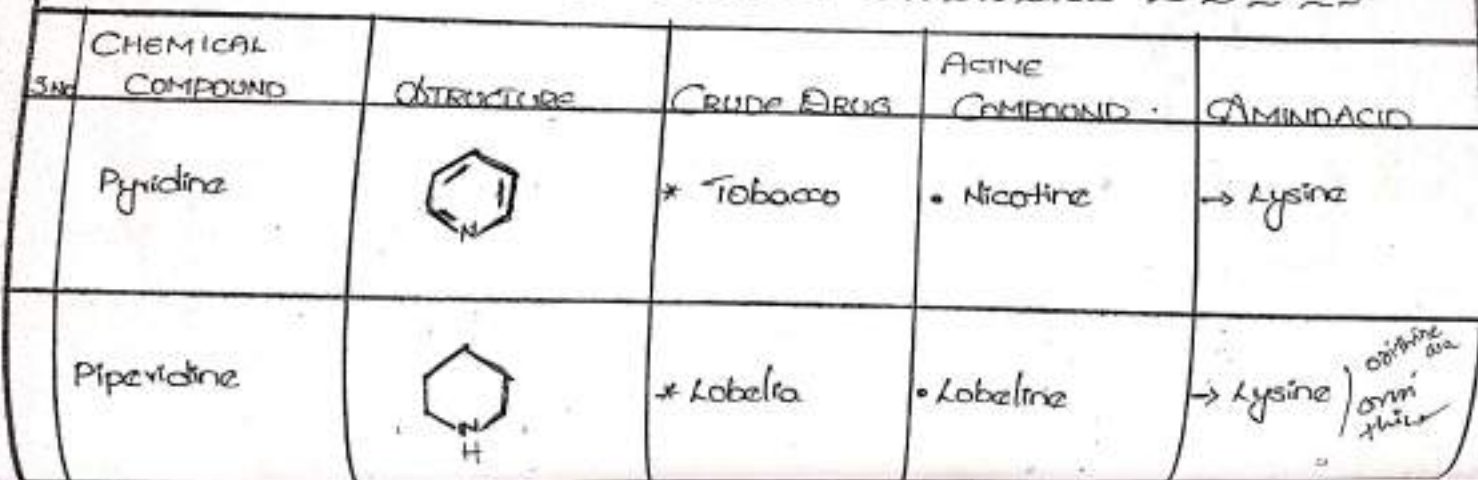 CHEMICAL
COMPOUND
S.No
STRUCTURE
CRUDE DRUG
ACTIVE
COMPOUND.
AMINOACID
Pyridine
N
* Tobacco
• Nicotine
→ Lysine
Piperidine
N
H
* Lobelia
• Lobeline
→ Lysine